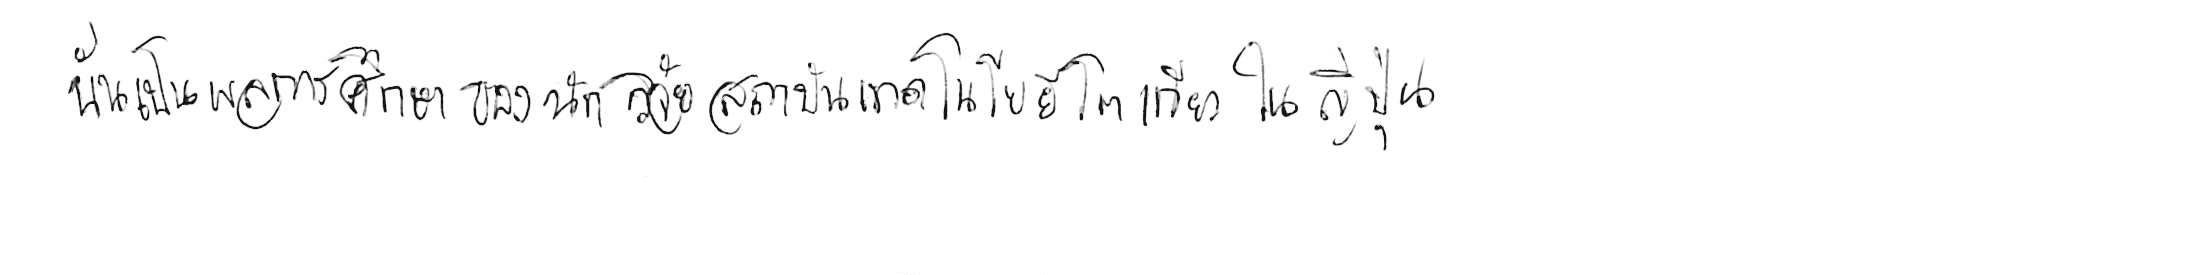 นั่นเป็นผลการศึกษา ของ นักวิจัย สถาบันเทคโนโยยีโตเกียว ในญี่ปุ่น